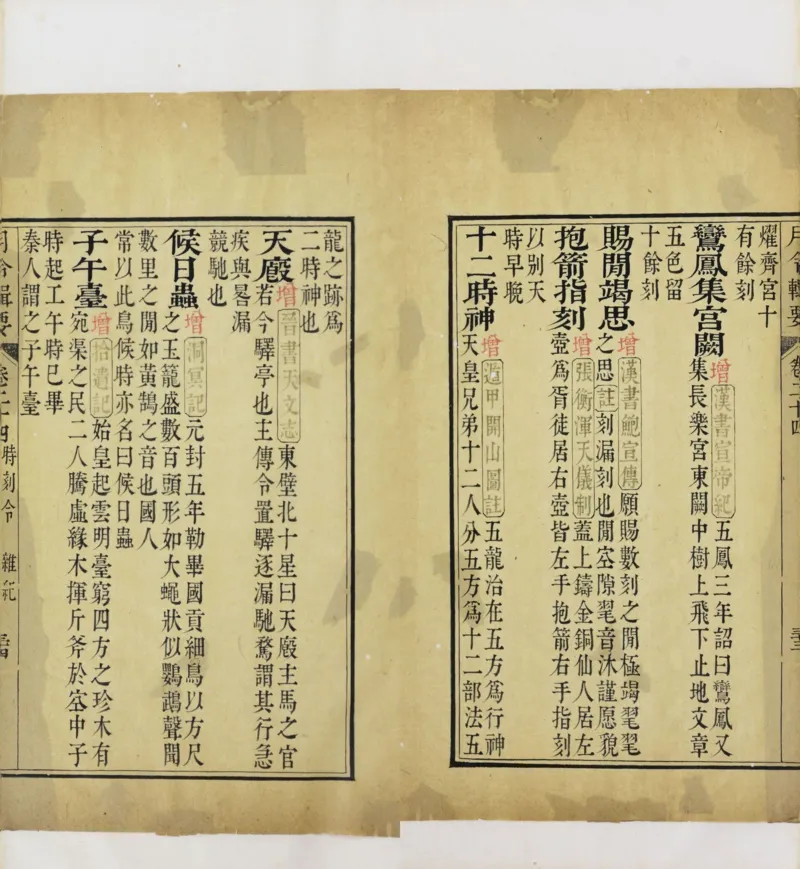 月令輯要
卷二十四
燿齊宮十
有餘刻
鸞鳳集宮闕增漢書宣帝紀五鳳三年詔曰鸞鳳又
集長樂宮東闕中樹上飛下止地文章
五色留
十餘刻
賜閒竭思增漢書鮑宣傳願賜數刻之閒極竭毣毣
之思註刻漏刻也閒空隙毣音沐謹愿貌
抱箭指刻增張衡渾天儀制蓋上鑄金銅仙人居左
壺爲胥徒居右壺皆左手抱箭右手指刻
以別天
時早晩
十二時神增遁甲開山圖註五龍治在五方爲行神
天皇兄弟十二人分五方爲十二部法五
龍之跡爲
二時神也
天廏增晉書天文志東壁北十星曰天廏主馬之官
若今驛亭也主傳令置驛逐漏馳騖謂其行急
疾與晷漏
競馳也
候日蟲增洞冥記元封五年勒畢國貢細鳥以方尺
之玉籠盛數百頭形如大蠅狀似鸚鵡聲聞
數里之閒如黃鵠之音也國人
常以此鳥候時亦名曰候日蟲
子午臺增拾遺記始皇起雲明臺窮四方之珍木有
宛渠之民二人騰虛緣木揮斤斧於空中子
時起工午時已畢
秦人謂之子午臺
月令輯要
卷二十四
時刻令
雜記